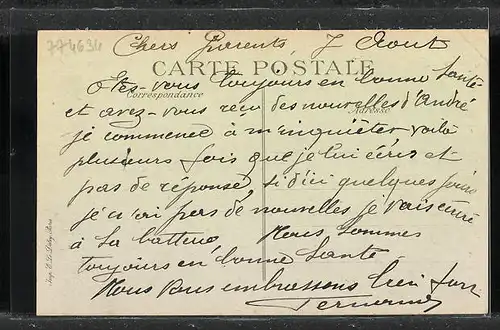 774634
Chers Parents, 7 Aout
CARTE POSTALE
Êtes-vous toujours en bonne santé
Correspondance
et avez-vous reçu des nouvelles d'André
Adresse
je commence à m'inquiéter voilà
plusieurs fois que je lui écris et
pas de réponse, si d'ici quelques jours
je n'ai pas de nouvelles je vais écrire
à la batterie Nous sommes
toujours en bonne santé
Nous vous embrassons bien fort